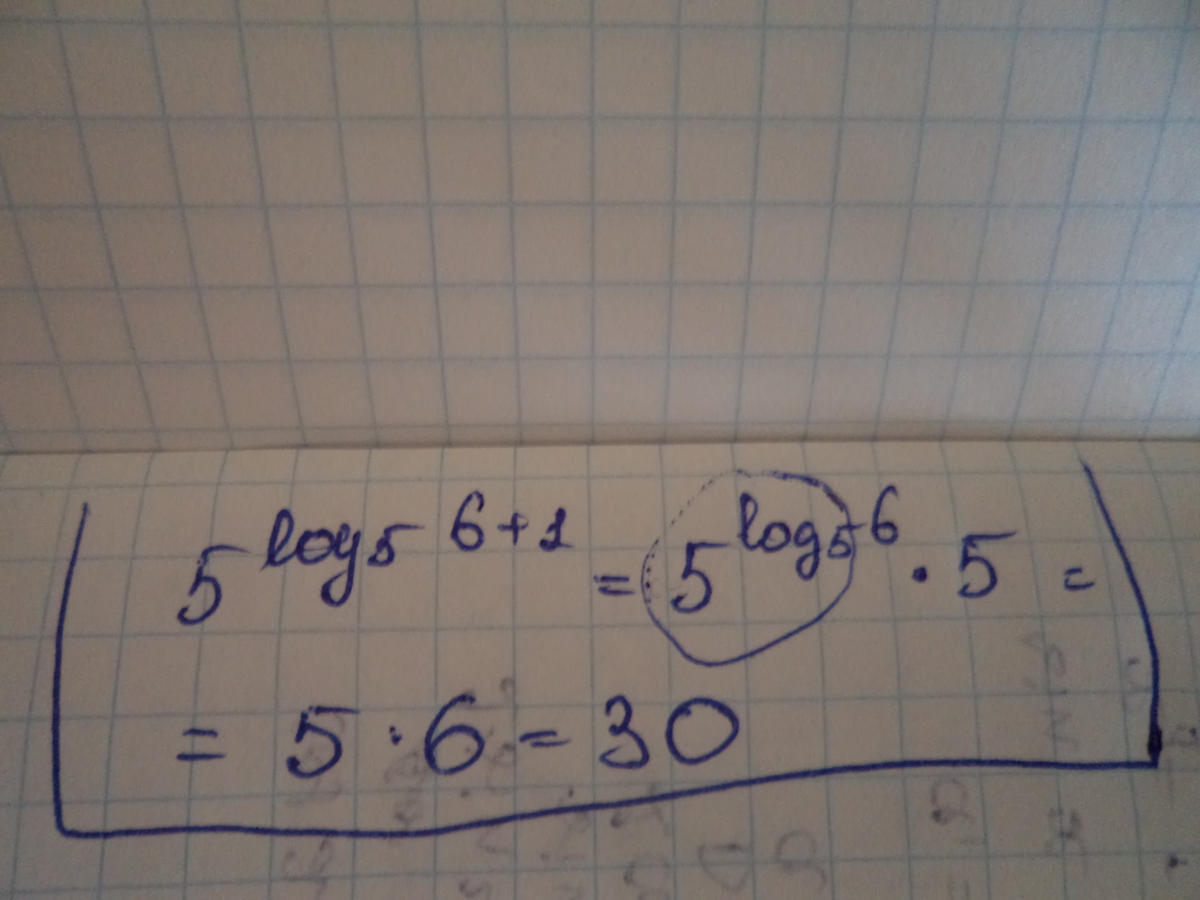 5^{log_5 6+1} = 5^{log_5 6} · 5 =
= 5 · 6 = 30